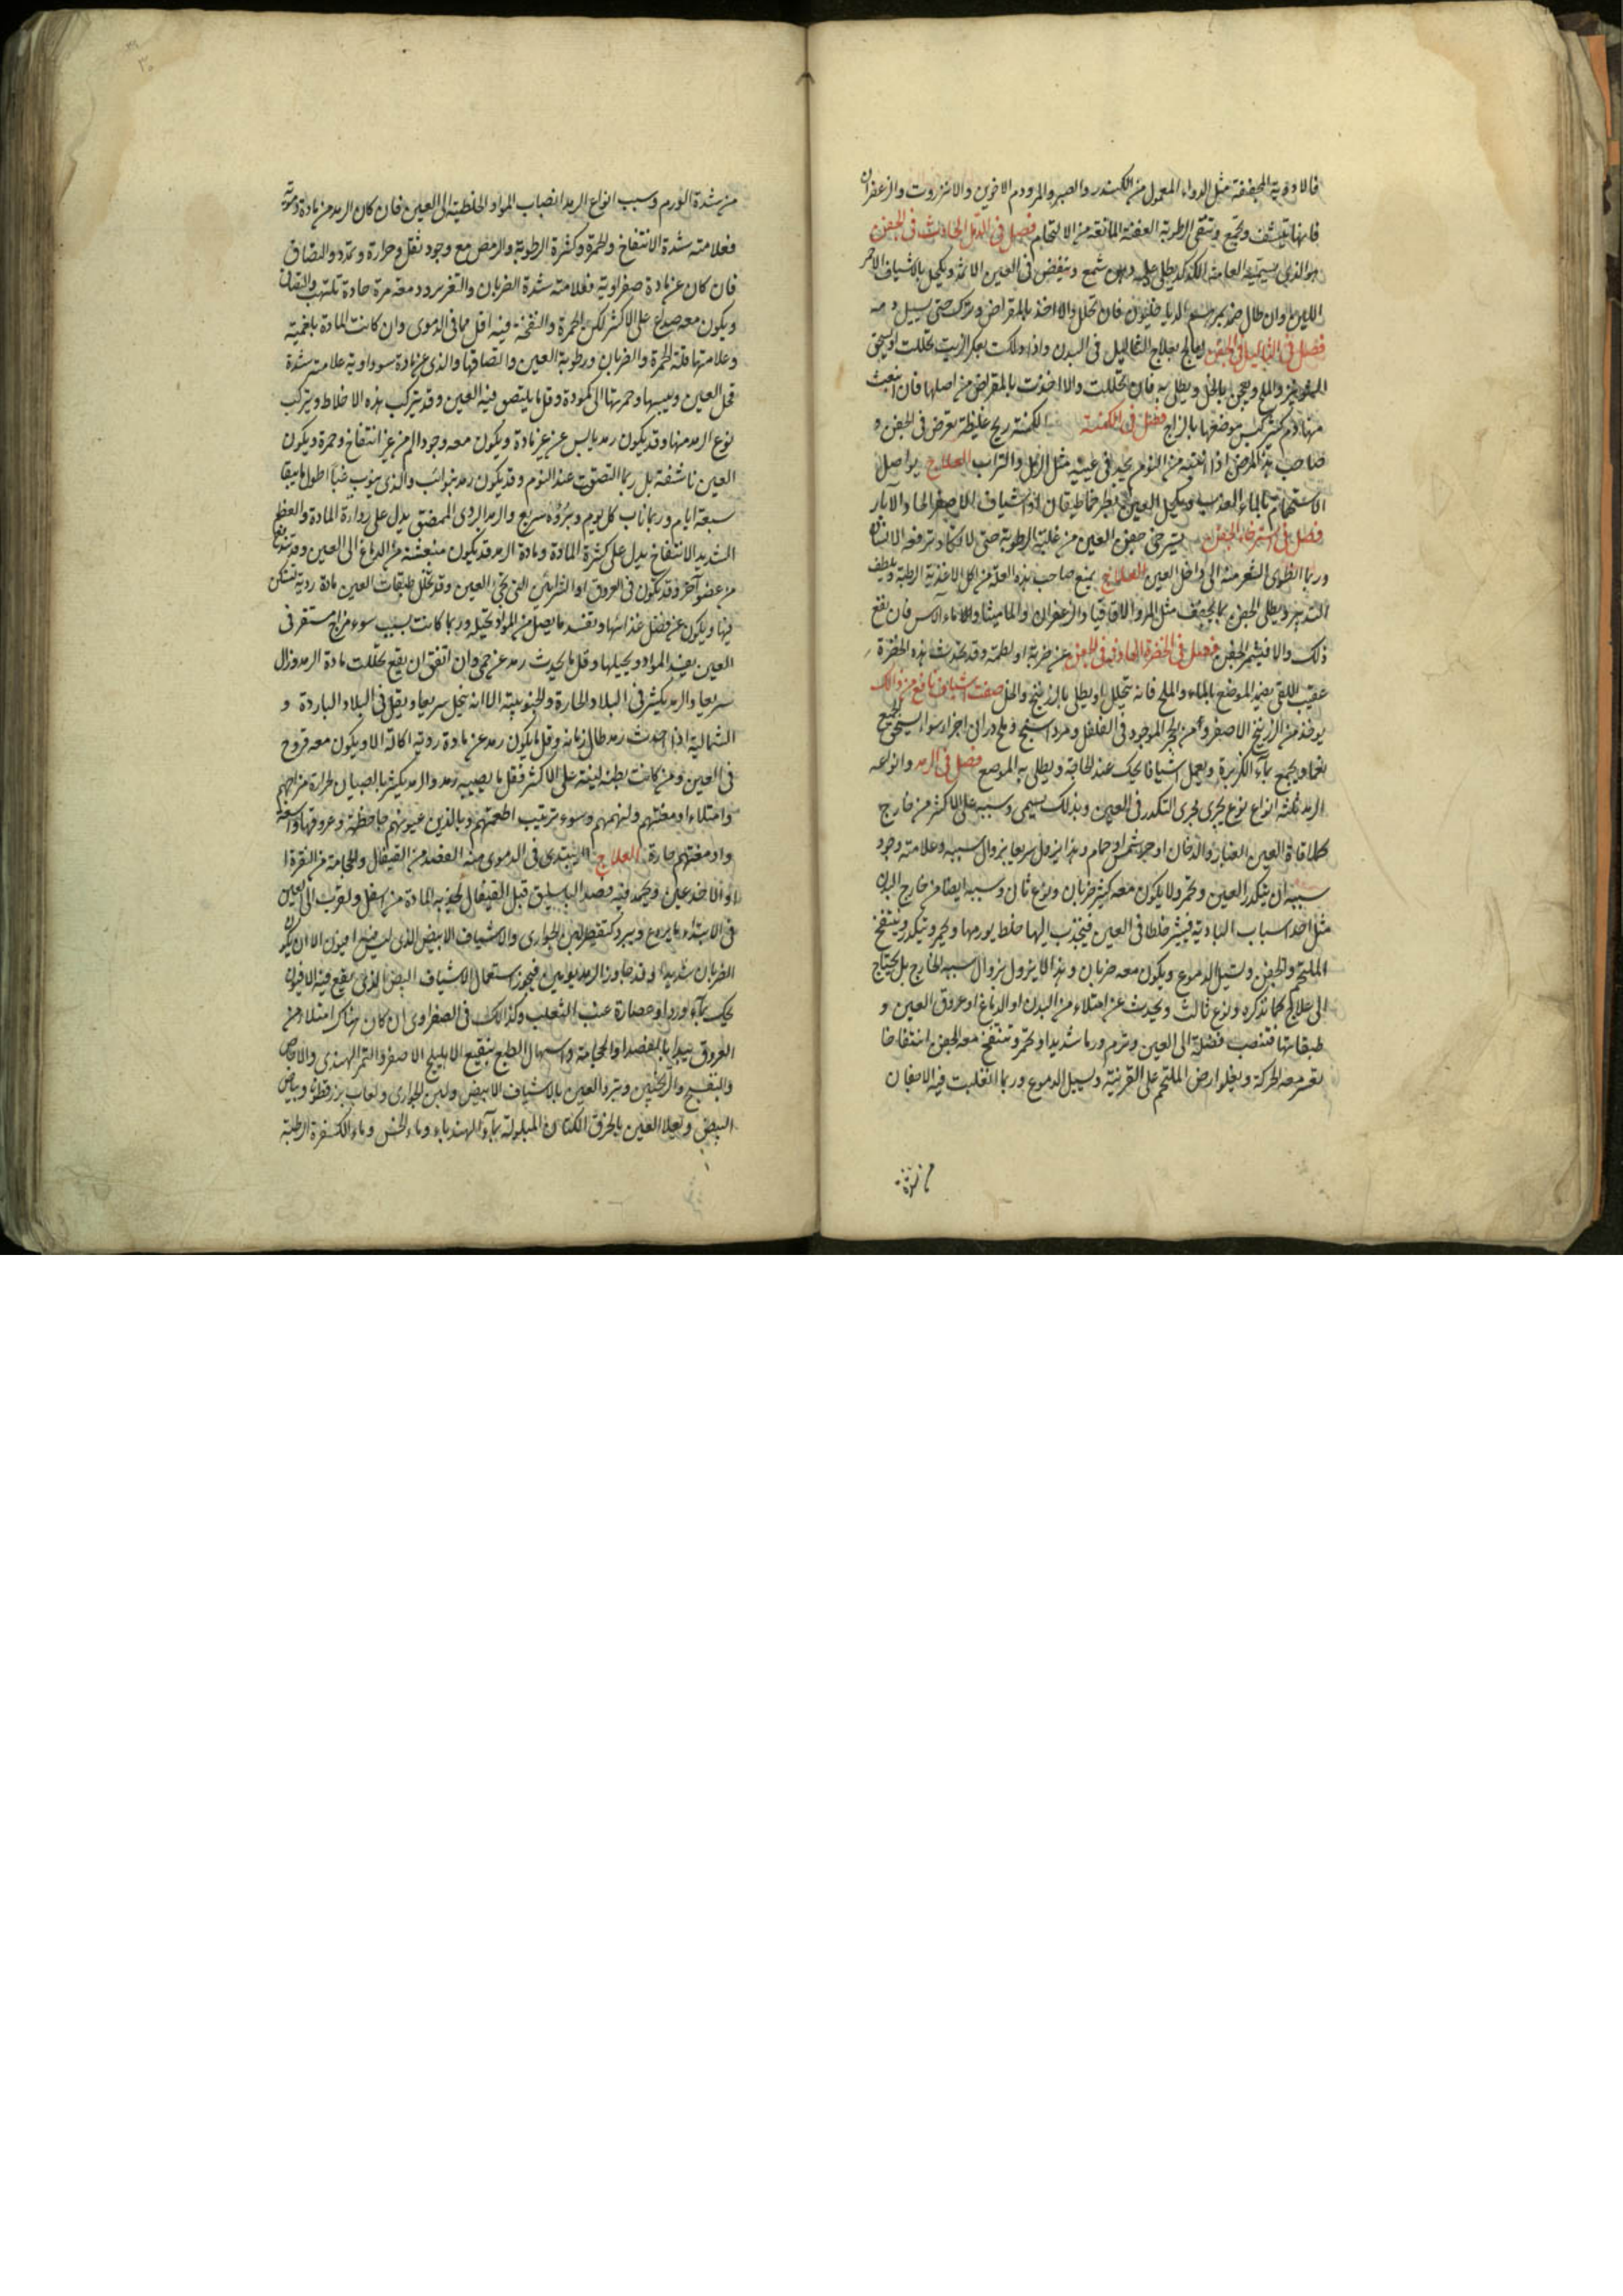 فالادوية المجففة مثل الدواء المعمول من الكندر والصبر والمر ودم الاخوين والانزروت والزعفران
فانها تنشف وتجمع وتنقى الرطوبة العفنة المانعة من الالتحام فصل فى الدمل الحادث فى الجفن
هو الذى يسميه العامة الكدكد يطلى عليه دهن شمع وينفض فى العين الاثمد ويكحل بالاشياف الاحمر
اللين وان طال مرهم الدياخليون فان تحلل والا اخذ بالمقراض وترك حتى يسيل دمه
فصل فى الثاليل فى الجفن يعالج بعلاج الثاليل فى البدن واذا دلكت بعكر الزيت تحللت او يسحق
والملح ويعجن بالخل ويطلى به فان تحللت والا اخذت بالمقراض من اصلها فان انبعث
منها دم كثير كبس موضعها بالزاج فصل فى الكمنة الكمنة ريح غليظة تعرض فى الجفن و
صاحب هذا المرض اذا انتبه من النوم يجد فى عينيه مثل الرمل والتراب العلاج يواصل
الاستحمام بالماء العذب ويكحل العين او اشياف الاصفر الحاد والابار
فصل فى استرخاء الجفن يسترخى جفن العين من غلبة الرطوبة حتى لا يكاد ترفعه الانسان
وربما انطوى الشعر منه الى داخل العين العلاج يمنع صاحب هذه العلة من اكل الاغذية الرطبة ويلطف
التدبير ويطلى الجفن بما يجفف مثل المر والاقاقيا والزعفران والماميثا وماء الاس فان نفع
ذلك والا فيشمر الجفن فصل فى الخضرة العارضة فى الجفن عن ضربة او لطمة وقد تحدث هذه الخضرة
عقيب القى يضمد الموضع بالماء والملح فانه يتحلل او يطلى بالزرنيخ والخل صفت اشياف نافع من ذلك
يوخذ من الزرنيخ الاصفر ومن الحجر الموجود فى الفلفل ومرداسنج وملح درانى اجزاء سواء يسحق الجميع
ناعما ويجمع بماء الكزبرة ويعمل اشيافا يحك عند الحاجة ويطلى به الموضع فصل فى الرمد وانواعه
الرمد ثلثة انواع نوع يجرى مجرى التكدر فى العين وبذلك يسمى وسببه على الاكثر من خارج
كملاقاة العين الغبار والدخان او حر شمس او حمام وهذا يزول سريعا بزوال سببه وعلامته وجود
سببه ان يتكدر العين وتحمر ولا يكون معه كثير ضربان ونوع ثان وسببه ايضا من خارج البدن
مثل احد اسباب البادية فيثير خلطا فى العين فينجذب اليها خلط يورمها ويحمر ويتكدر وينتفخ
الملتحم والجفن وتسيل الدموع ويكون معه ضربان وهذا لا يزول بزوال سببه الخارج بل يحتاج
الى علاج كما نذكره ونوع ثالث ويحدث عن امتلاء من البدن او الدماغ او عروق العين و
طبقاتها فتنصب فضلة الى العين وترم ورما شديدا وتحمر وتنتفخ معه الجفن انتفاخا
تعسر معه الحركة ويعلو ارض الملتحم على القرنية وتسيل الدموع وربما انقلبت فيه الاجفان
من شدة
من شدة الورم وسبب انواع الرمد انصباب المواد الخلطية الى العين فان كان الرمد من مادة دموية
فعلامته شدة الانتفاخ والحمرة وكثرة الرطوبة والرمص مع وجود ثقل وحرارة وتمدد والتصاق
فان كان عن مادة صفراوية فعلامته شدة الضربان والتغرير ودمعته مرة حادة تلتهب والتصاقا
ويكون معه صداع على الاكثر لكن الحمرة والنفخة فيه اقل مما فى الدموى وان كانت المادة بلغمية
وعلامتها قلة الحمرة والضربان ورطوبة العين والتصاقها والذى عن مادة سوداوية علامته شدة
قحل العين ويبسها وحمرتها الى كمودة وقل ما يلتصق فيه العين وقد يتركب هذه الاخلاط ويتركب
نوع الرمد منها وقد يكون رمد يابس عن غير مادة ويكون معه وجود الم من غير انتفاخ وحمرة ويكون
العين ناشفة بل ربما التصقت عند النوم وقد يكون رمد بنوائب والذى ينوب غبا اطول ما يبقا
سبعة ايام وربما ناب كل يوم وبرؤه سريع والرمد الردى الممضق يدل على رداءة المادة والعظيم
الشديد الانتفاخ يدل على كثرة المادة ومادة الرمد قد يكون منبعثة من الدماغ الى العين وقد تندفع
من عضو آخر وقد يكون فى العروق او الشرايين التى تجئ العين وقد تتخلل طبقات العين مادة ردية تسكن
فيها ويكون عن فضل غذائها وتفسد ما يصل من المواد تحيله وربما كانت بسبب سوء مزاج مستقر فى
العين يفسد المواد ويحيلها وقل ما يحدث رمد عن حمى وان اتفق ان يقع تحللت مادة الرمد وزال
سريعا والرمد يكثر فى البلاد الحارة والجنوبية الا انه يتحلل سريعا ويقل فى البلاد الباردة و
الشمالية اذا حدث رمد طال زمانه وقل ما يكون رمد عن مادة ردية اكالة الا ويكون معه قروح
فى العين ومن كانت بطنه لينة على الاكثر فقل ما يصيبه رمد والرمد يكثر بالصبيان لحرارة مزاجهم
وامتلاء ادمغتهم ولنهمهم وسوء ترتيب اطعمتهم وبالذين عيونهم جاحظة وعروقها واسعة
وادمغتهم حارة العلاج يبتدى فى الدموى منه الفصد من القيفال والحجامة من النقرة ا
او الاخدعين ويحمد فيه فصد الباسليق قبل القيفال لجذبه المادة من اسفل ولقرب الى العين
فى الابتداء ما يردع ويبرد كتقطير لبن الجوارى والاشياف الابيض الذى ليس فيه افيون الا ان يكون
الضربان شديدا وقد جاوز الرمد يومين فيجوز استعمال الاشياف البيض الذى يقع فيه الافيون
يحك بماء ورد او عصارة عنب الثعلب وكذالك فى الصفراوى ان كان هناك امتلاء من
العروق يبدا بالفصد او الحجامة واسهال الطبع بنقيع الاهليلج الاصفر والتمر الهندى والاجاص
والبنفسج والترنجبين ويبرد العين بالاشياف الابيض ولبن الجوارى ولعاب بزر قطونا وبياض
البيض وتعلا العين بالخرق الكتان المبلولة بماء الهندباء وماء الخس وماء الكسفرة الرطبة